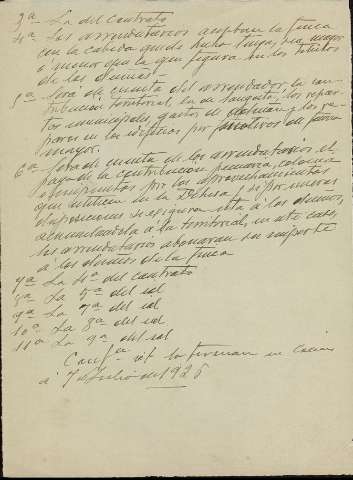 3ª La del contrato
4ª Los arrendatarios aceptan la finca
con la cabida que de hecho tenga, sea mayor
ó menor que la que figura en los títulos
de los dueños.
5ª Será de cuenta del arrendador la con-
tribución territorial, la de
municipales, gastos de y los re-
paros en los edificios por motivos de fuerza
mayor.
6ª Será de cuenta de los arrendatarios el
pago de la contribución pecuaria, colonia
é impuestos por los aprovechamientos
que utilicen en la Dehesa y si por nuevas
disposiciones se exigiera ésta á los dueños,
acumulandola á la territorial, en este caso,
los arrendatarios abonaran su importe
a los dueños de la finca
7ª La 4ª del contrato
8ª La 5ª del id
9ª La 7ª del id
10ª La 8ª del id
11ª La 9ª del id
la firman en
á 7 de Julio de 1926